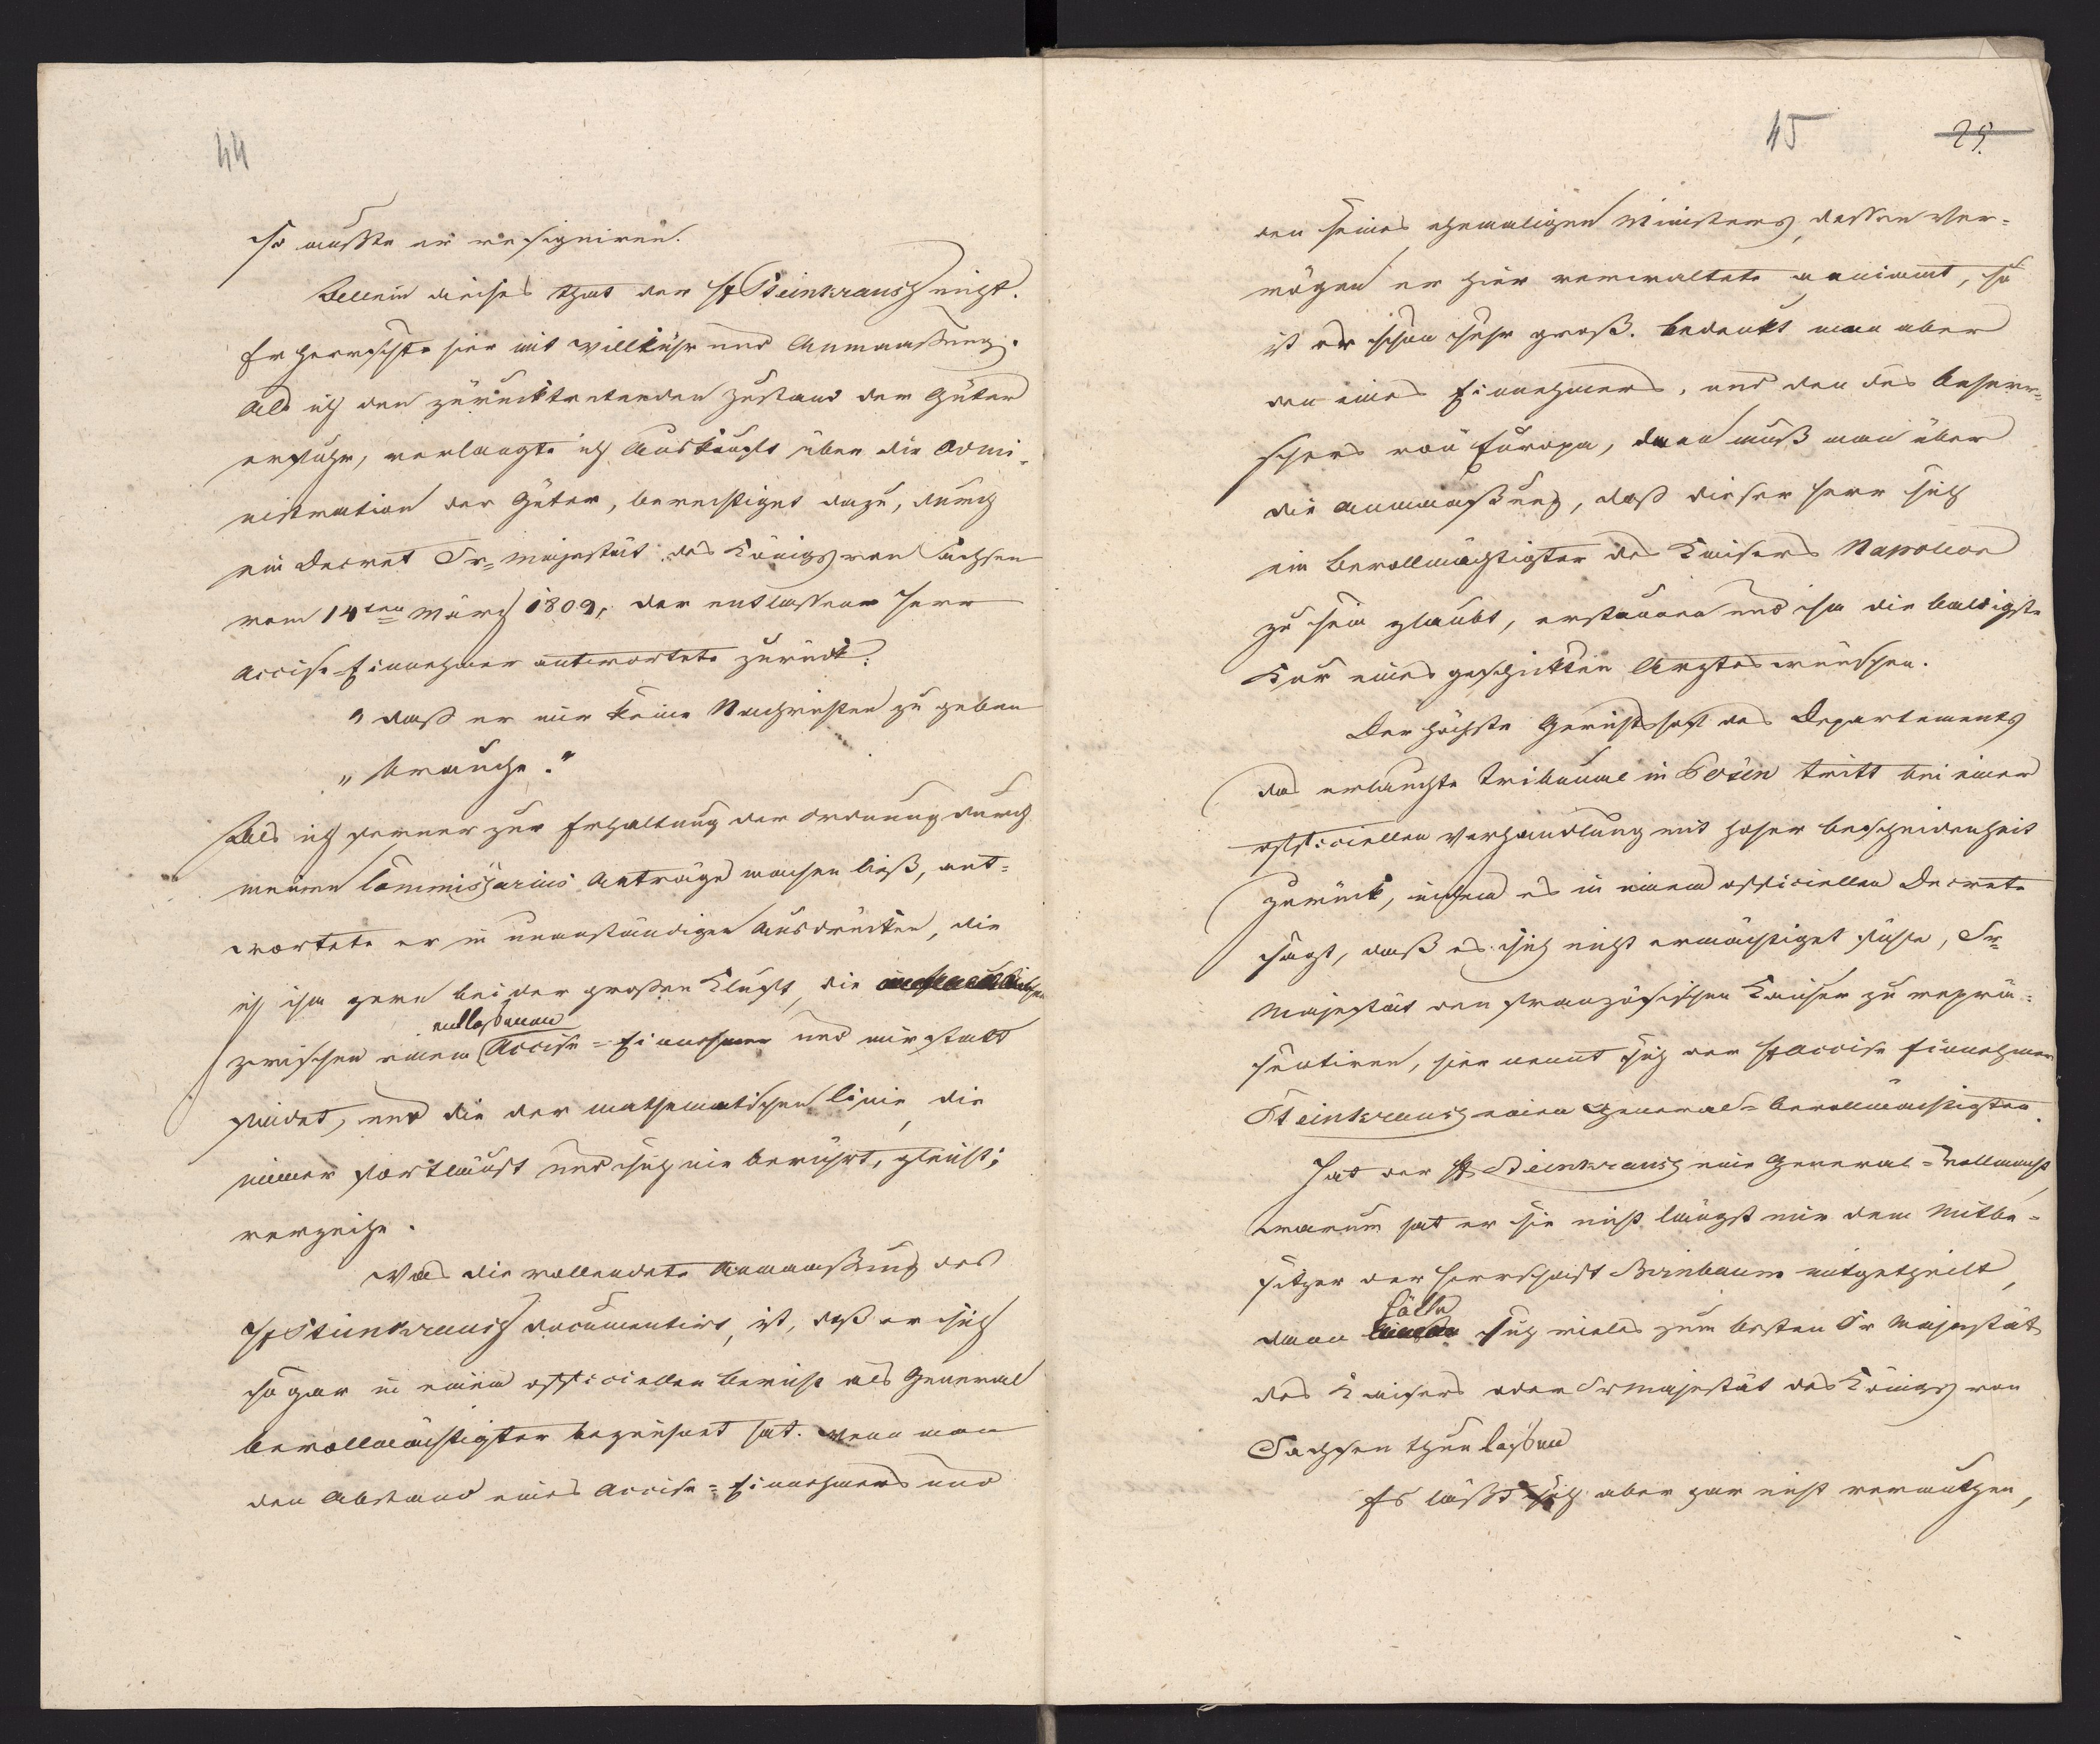 44
so mußte er resigniren.
Allein dieses that der H Steinkrausch nicht.
Er herrschte hier mit Willkühr und Anmaaßung.
Als ich den zurücktretenden Zustand der Güter
erfuhr, verlangte ich Auskunft über die Admi-
nistration der Güter, berechtiget dazu, durch
ein Decret Sr= Majestät des Königs von Sachsen
vom 14ten März 1809, der entlassene Herr
Accise-Einnehmer antwortete zurück:
"daß er mir keine Nachrichten zu geben
"brauche."
Als ich ferner zur Erhaltung der Ordnung durch
meinen Commissarius Anträge machen ließ, ant-
wortete er in unanständigen Ausdrücken, die
ich ihm gern bei der großen Kluft, die
entlassenen
zwischen einem Accise=Einnehmer und mir statt
findet, und die der mathematischen Linie, die
immer fortläuft und sich nie berührt, gleicht;
verzeihe.
Was die vollendete Anmaaßung des
H Steinkrausch documentirt, ist, daß er sich
sogar in einem officiellen Bericht als General
bevollmächtigter bezeichnet hat. Wenn man
den Abstand eines Accise=Einnehmers und
45
25.
den seines ehemaligen Ministers, dessen Ver-
mögen er hier verwaltete annimmt, so
ist er schon sehr groß. Bedenkt man aber
den eines Einnehmers, und den des Beherr-
schers von Europa, dann muß man über
die Anmaaßung, daß dieser Herr sich
ein Bevollmächtigter des Kaisers Napoleon
zu sein glaubt, erstaunen und ihm die baldigste
Kur eines geschickten Arztes wünschen.
Der höchste Gerichtshof des Departements
das erlauchte Tribunal in Posen tritt bei einer
officiellen Verhandlung mit hoher Bescheidenheit
zurück, indem es in einem officiellen Decrete
sagt, daß es sich nicht ermächtiget fühle, Sr=
Majestät den französischen Kaiser zu reprä-
sentiren, hier nennt sich der H Accise Einnehmer
Steinkrausch einen General=Bevollmächtigten.
Hat der H Steinkrausch eine General=Vollmacht,
warum hat er sie nicht längst mir dem Mitbe-
sitzer der Herrschaft Birnbaum mitgetheilt,
hätte
dann sich vieles zum besten Sr Majestät
des Kaisers oder Sr Majestät des Königs von
Sachsen thun lassen
Es läßt sich aber gar nicht vermuthen,